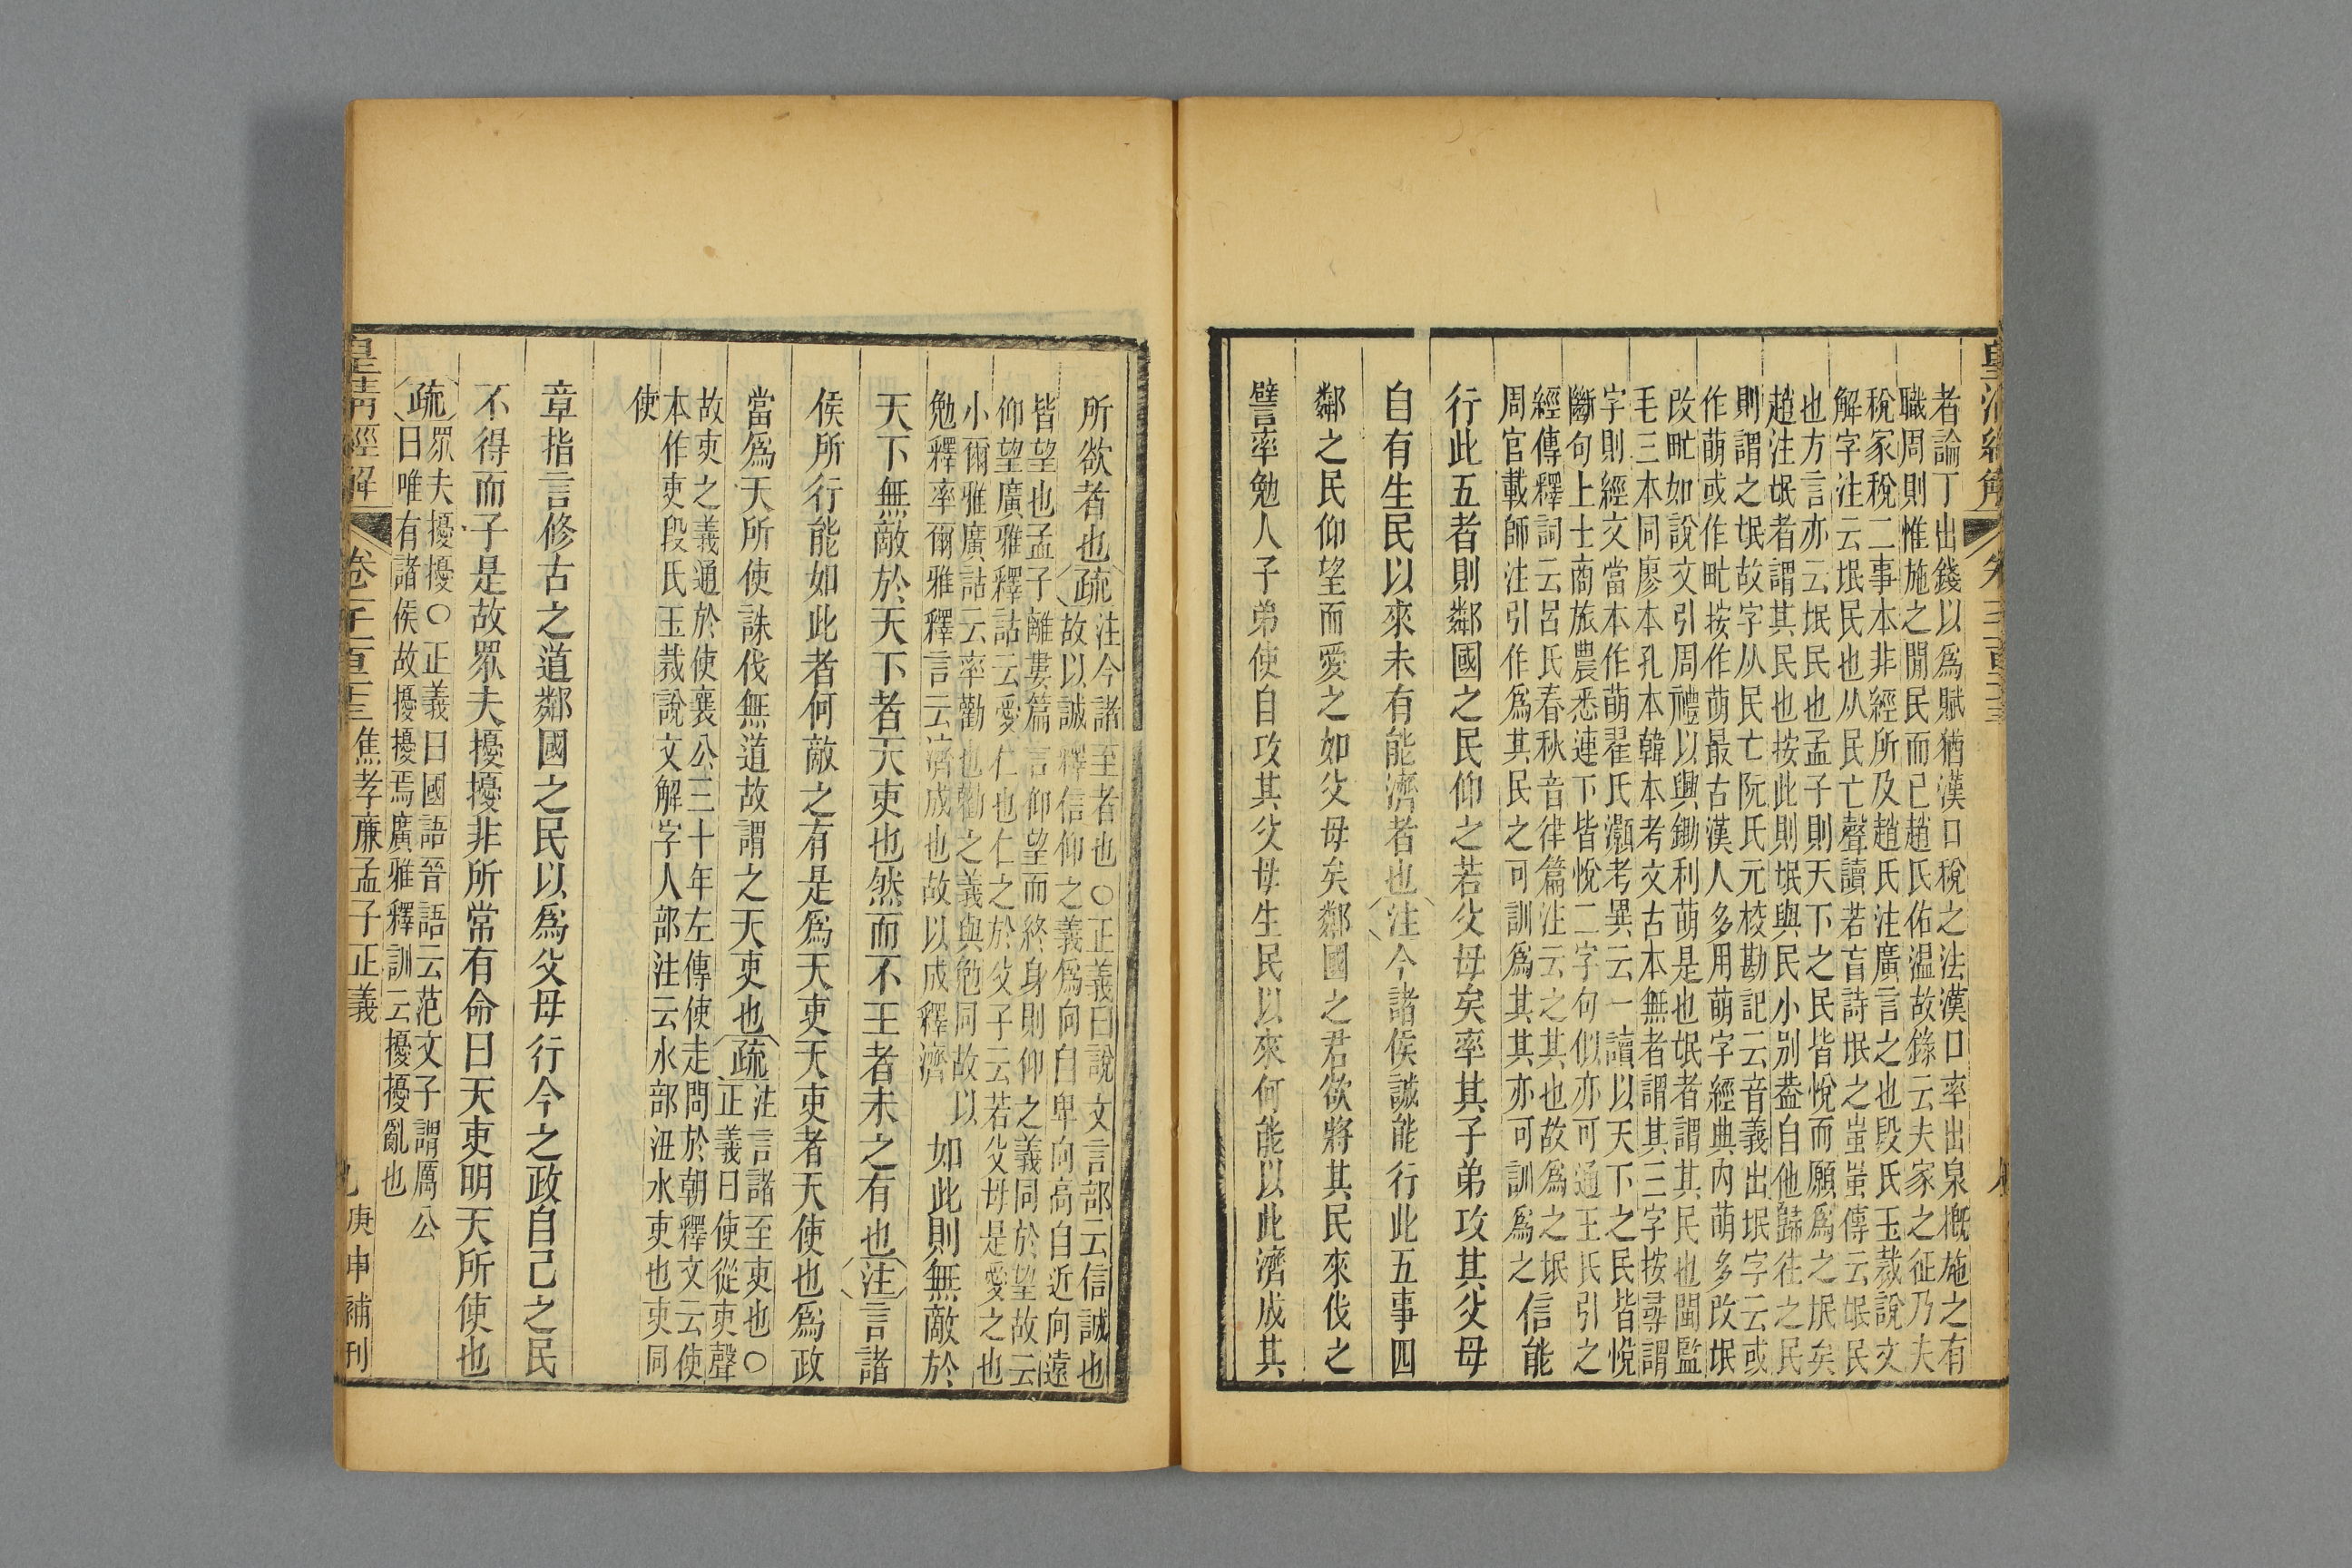 者論丁出錢以爲賦猶漢口稅之法漢口率出泉槪施之有
職周則惟施之閒民而已趙氏佑温故錄云夫家之征乃夫
稅家稅二事本非經所及趙氏注廣言之也段氏玉裁說文
解字注云氓民也从民亡聲讀若盲詩氓之蚩蚩傳云氓民
也方言亦云氓民也孟子則天下之民皆悅而願爲之氓矣
趙注氓者謂其民也按此則氓與民小别葢自他歸往之民
則謂之氓故字从民亡阮氏元校勘記云音義出氓字云或
作萌或作甿按作萌最古漢人多用萌字經典内萌多改氓
改甿如說文引周禮以興鋤利萌是也氓者謂其民也閩監
毛三本同廖本孔本韓本考文古本無者謂其三字按尋謂
字則經文當本作萌翟氏灝考異云一讀以天下之民皆悅
斷句上士商旅農悉連下皆悅二字句似亦可通王氏引之
經傳釋詞云呂氏春秋音律篇注云之其也故爲之氓
周官載師注引作爲其民之可訓爲其其亦可訓爲之
信能
行此五者則鄰國之民仰之若父母矣率其子弟攻其父母
自有生民以來未有能濟者也注今諸侯誠能行此五事四
鄰之民仰望而愛之如父母矣鄰國之君欲將其民來伐之
譬率勉人子弟使自攻其父母生民以來何能以此濟成其
所欲者也疏
注今諸至者也○正義曰說文言部云信誠也
故以誠釋信仰之義爲向自卑向高自近向遠
皆望也孟子離婁篇言仰望而終身則仰之義同於望故云
仰望廣雅釋詁云愛仁也仁之於父子云若父母是愛之也
小爾雅廣詁云率勸也勸之義與勉同故以
勉釋率爾雅釋言云濟成也故以成釋濟
如此則無敵於
天下無敵於天下者天吏也然而不王者未之有也注言諸
侯所行能如此者何敵之有是爲天吏天吏者天使也爲政
當爲天所使誅伐無道故謂之天吏也疏
注言諸至吏也○
正義曰使從吏聲
故吏之義通於使襄公三十年左傳使走問於朝釋文云使
本作吏段氏玉裁說文解字人部注云水部泄水吏也吏同
使
章指言修古之道鄰國之民以爲父母行今之政自己之民
不得而子是故眾夫擾擾非所常有命曰天吏明天所使也
疏
眾夫擾擾○正義曰國語晉語云范文子謂厲公
曰唯有諸侯故擾擾焉廣雅釋訓云擾擾亂也
皇清經解
卷一千一百二十三
焦孝廉孟子正義
九
庚申補刊